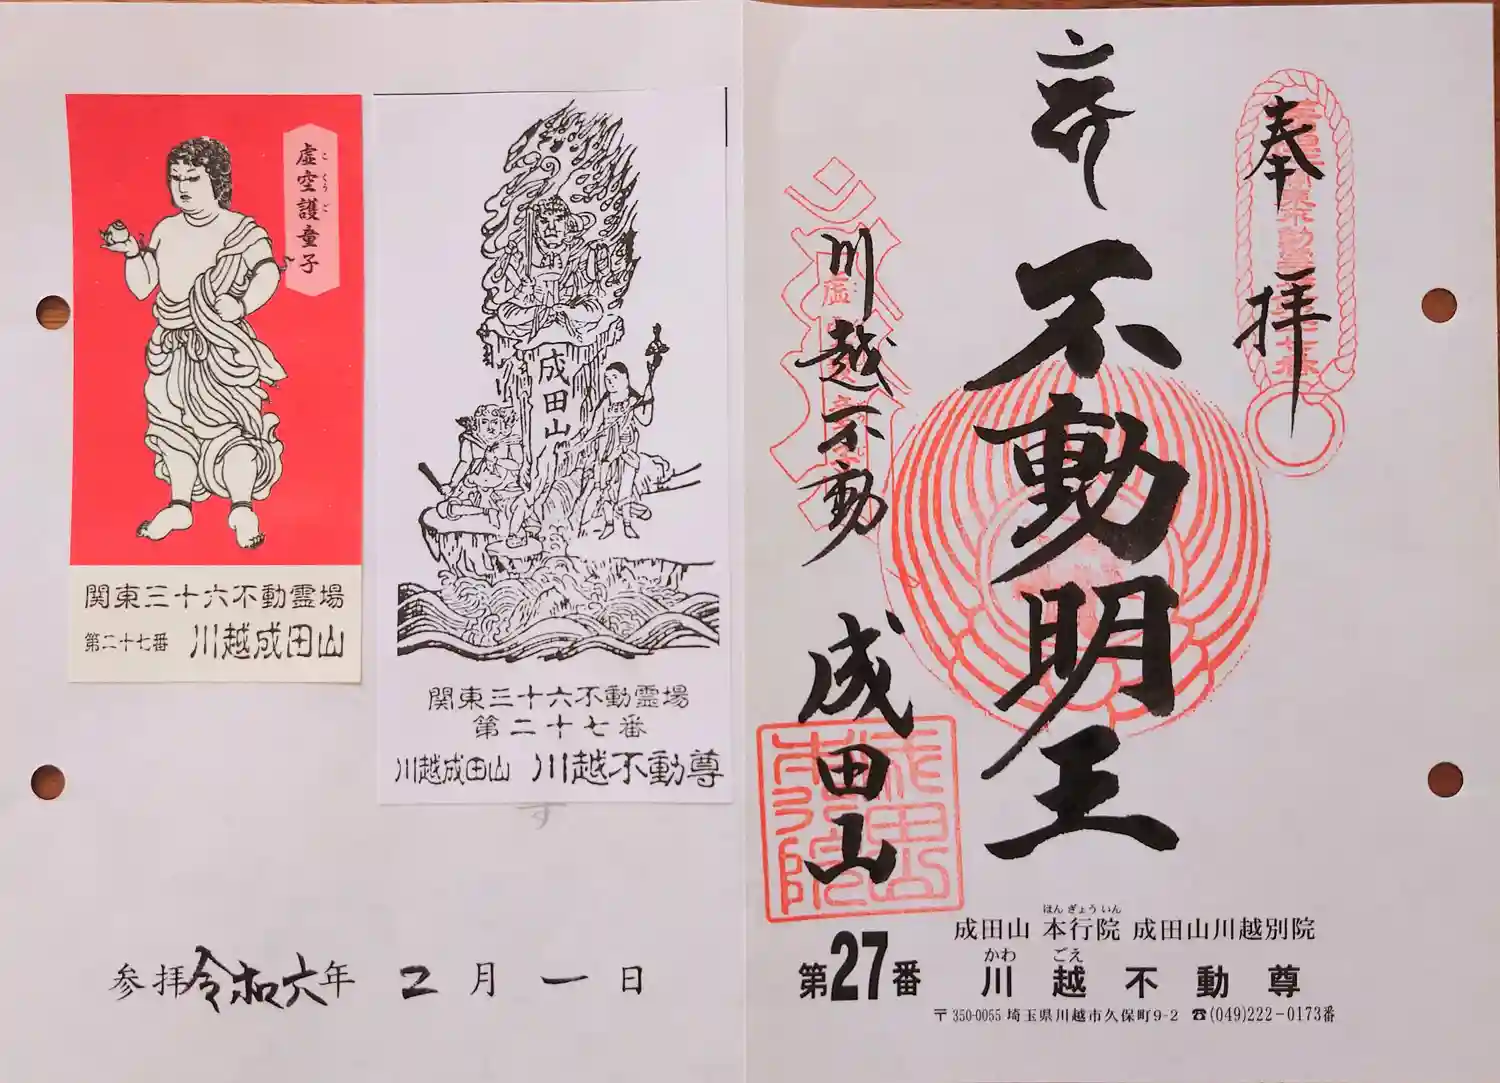 奉拝
不動明王
川越不動
成田山
成田山
本行院
ほんぎょういん
成田山 本行院 成田山川越別院
第27番
かわ ごえ
川越不動尊
〒350-0055 埼玉県川越市久保町9-2 ☎(049)222-0173番
成田山
関東三十六不動霊場
第二十七番
川越成田山 川越不動尊
こくうごどうじ
虚空護童子
関東三十六不動霊場
第二十七番 川越成田山
参拝令和六年 二月一日